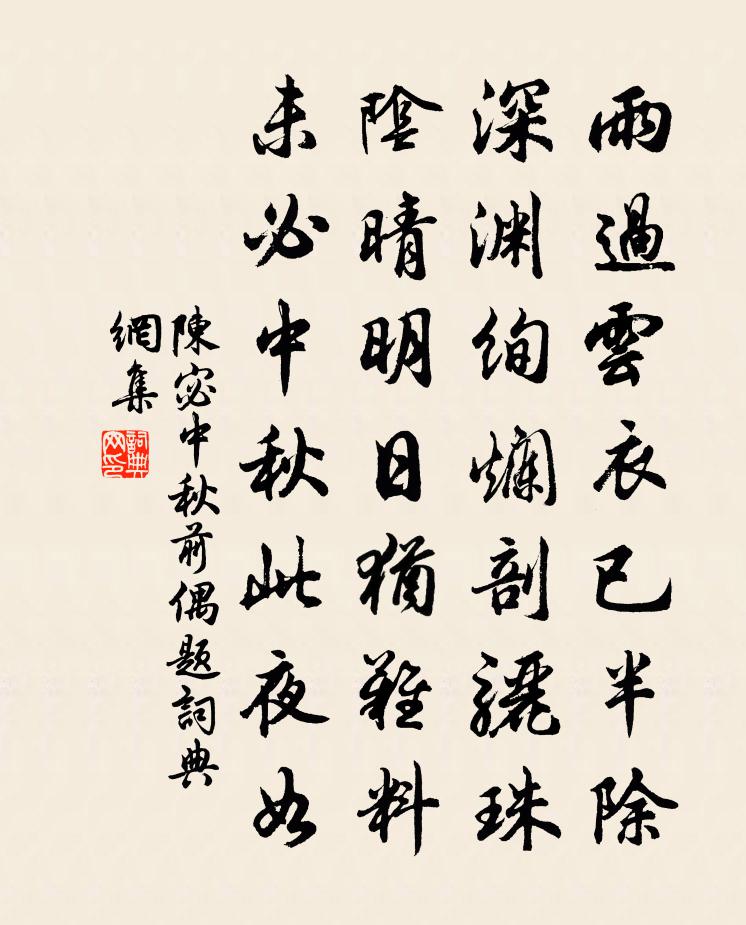 雨過雲衣已半除
深淵絢爛剖驪珠
陰晴明日猶難料
未必中秋此夜如
陳宓中秋前偶題詞典
網集
詞典
网印